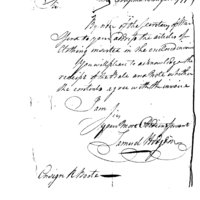 Sir
By order of the Secretary of War I
Send to your address the articles of
Clothing mentioned in the enclosed invoice
You will please to acknowledge the
receipt of the Bale and note whether
the contents agree with the invoice
I am Sir
Your Most Obedient Servant
Samuel Hodgdon
Ensign R Beete